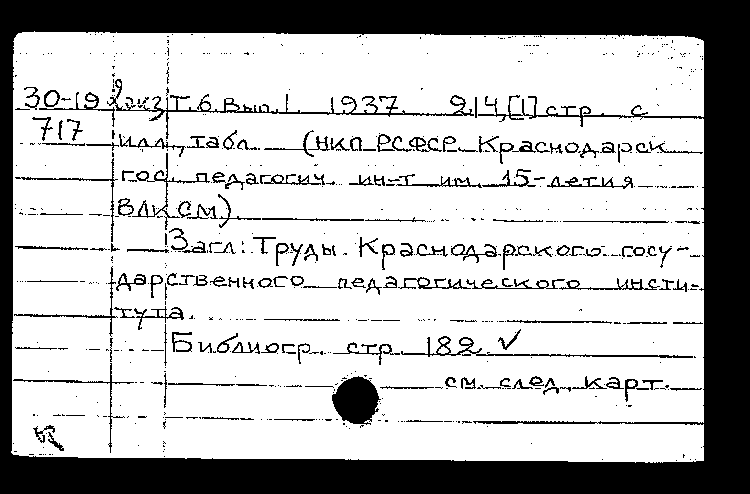 30-19 2 экз Т. 6. Вып. 1. 1937. 214, [1] стр. с
717
илл., табл. (НКП РСФСР. Краснодарск
гос. педагогич. ин-т им. 15-летия
ВЛКСМ).
Загл: Труды. Краснодарского госу-
дарственного педагогического инсти-
тута.
Библиогр. стр. 182. ✓
см. след. карт.